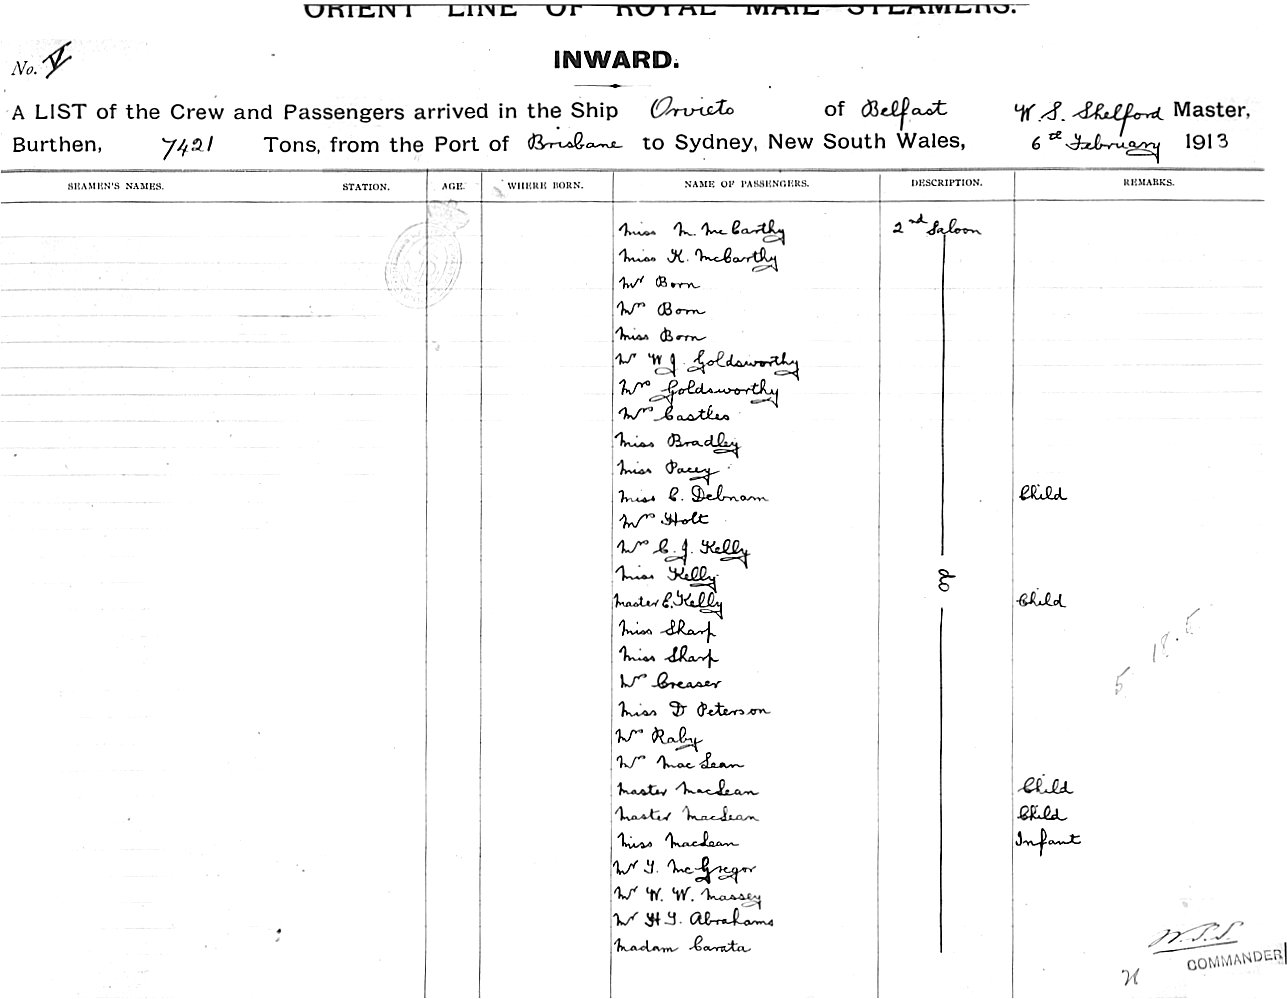 ORIENT LINE OF ROYAL MAIL STEAMERS.
No. V
INWARD.
A LIST of the Crew and Passengers arrived in the Ship Orvieto of Belfast W. S. Shelford Master,
Burthen, 7421 Tons, from the Port of Brisbane to Sydney, New South Wales, 6th February 1913
SEAMEN'S NAMES. STATION. AGE. WHERE BORN. NAME OF PASSENGERS. DESCRIPTION. REMARKS.
Miss M. McCarthy 2nd Saloon
Miss K. McCarthy
Mr Born
Mrs Born
Miss Born
Mr W J. Goldsworthy
Mrs Goldsworthy
Mrs Castles
Miss Bradley
Miss Pacey
Miss C. Debnam Child
Mrs Holt
Mrs C. J. Kelly
Miss Kelly do
Master C. Kelly Child
Miss Sharp
Miss Sharp
Mrs Creaser
Miss D Peterson
Mrs Raby
Mrs MacLean
Master MacLean Child
Master MacLean Child
Miss MacLean Infant
Mr T. McGregor
Mr W. W. Massey
Mr H T. Abrahams
Madam Carata
5 18.5
W.S.S.
COMMANDER